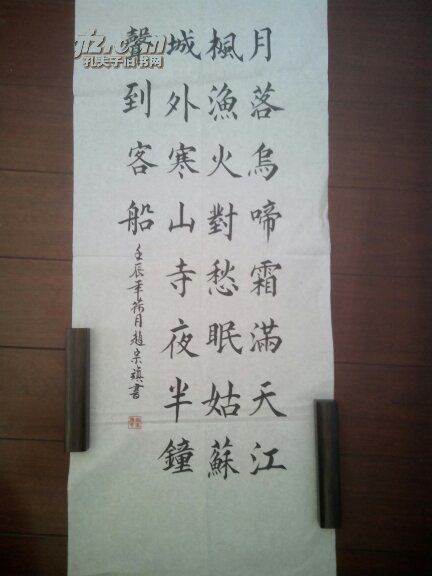 月落烏啼霜滿天江
楓漁火對愁眠姑蘇
城外寒山寺夜半鐘
聲到客船
壬辰年荷月趙宗鎮書
孔夫子旧书网